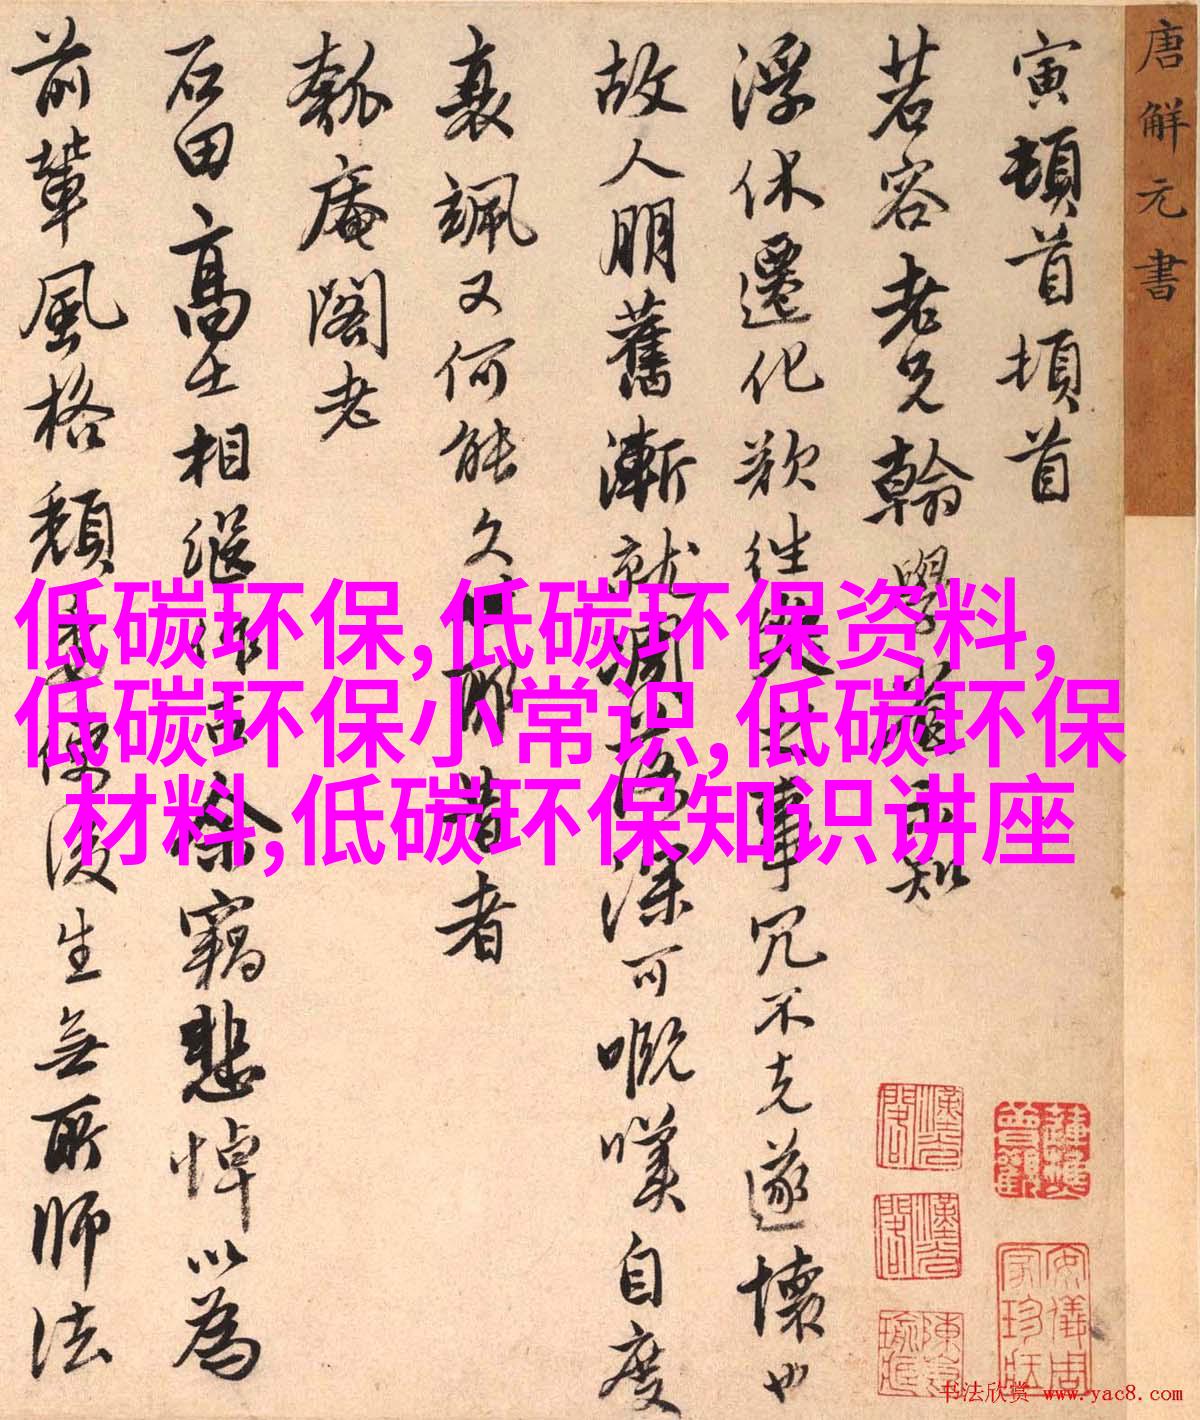 唐解元書
寅頓首頓首
茗容老兄翰學首
知
浮休遷化欲往
事冗不克遂懷也
故人朋舊漸就凋落深可嘅嘆自度
衰颯又何能久
昔者
瓠庵閣老
石田高士相繼作古
竊悲悼以為
前輩風格頹
後生無所師法
低碳环保,低碳环保资料,
低碳环保小常识,低碳环保
材料,低碳环保知识讲座
书法欣赏 www.yac8.com